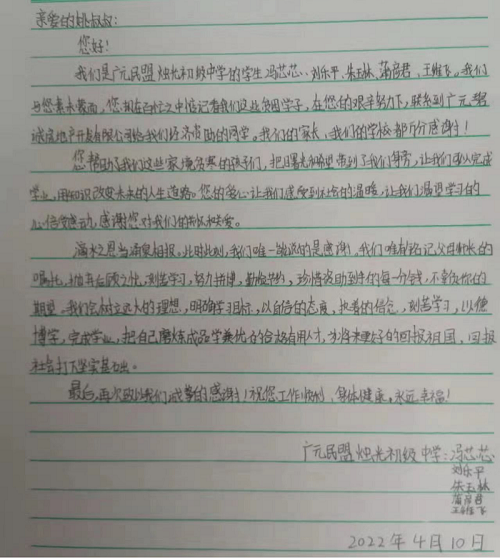 亲爱的姚叔叔:
您好!
我们是广元民盟烛光初级中学的学生冯芯芯、刘乐平、朱玉林、蒲彦君、王维飞。我们
与您素未蒙面,您却在百忙之中惦记着我们这些贫困学子,在您的艰辛努力下,联系到广元
房地产开发有限公司给我们经济资助的同学。我们的家长,我们的学校都万分感谢!
您帮助了我们这些家境贫寒的孩子们,把曙光和希望带到了我们身旁,让我们得以完成
学业,用知识改变未来的人生道路。您的爱心让我们感受到社会的温暖,让我们渴望学习的
心倍受感动,感谢您对我们的关爱。
滴水之恩当涌泉相报。此时此刻,我们唯一能说的是感谢,我们唯有铭记父母师长的
嘱托,抛弃后顾之忧,刻苦学习,努力拼搏,勤俭节约,珍惜资助到手的每一分钱,不辜负你的
期望。我们会树立远大的理想,明确学习目标,以自信的态度、执着的信念,刻苦学习,以便
博学,完成学业,把自己磨炼成品学兼优的合格有用人才,为将来更好的回报祖国,回报
社会打下坚实基础。
最后,再次致以我们诚挚的感谢!祝您工作顺利、身体健康,永远幸福!
广元民盟烛光初级中学:冯芯芯
刘乐平
朱玉林
蒲彦君
2022年4月10日